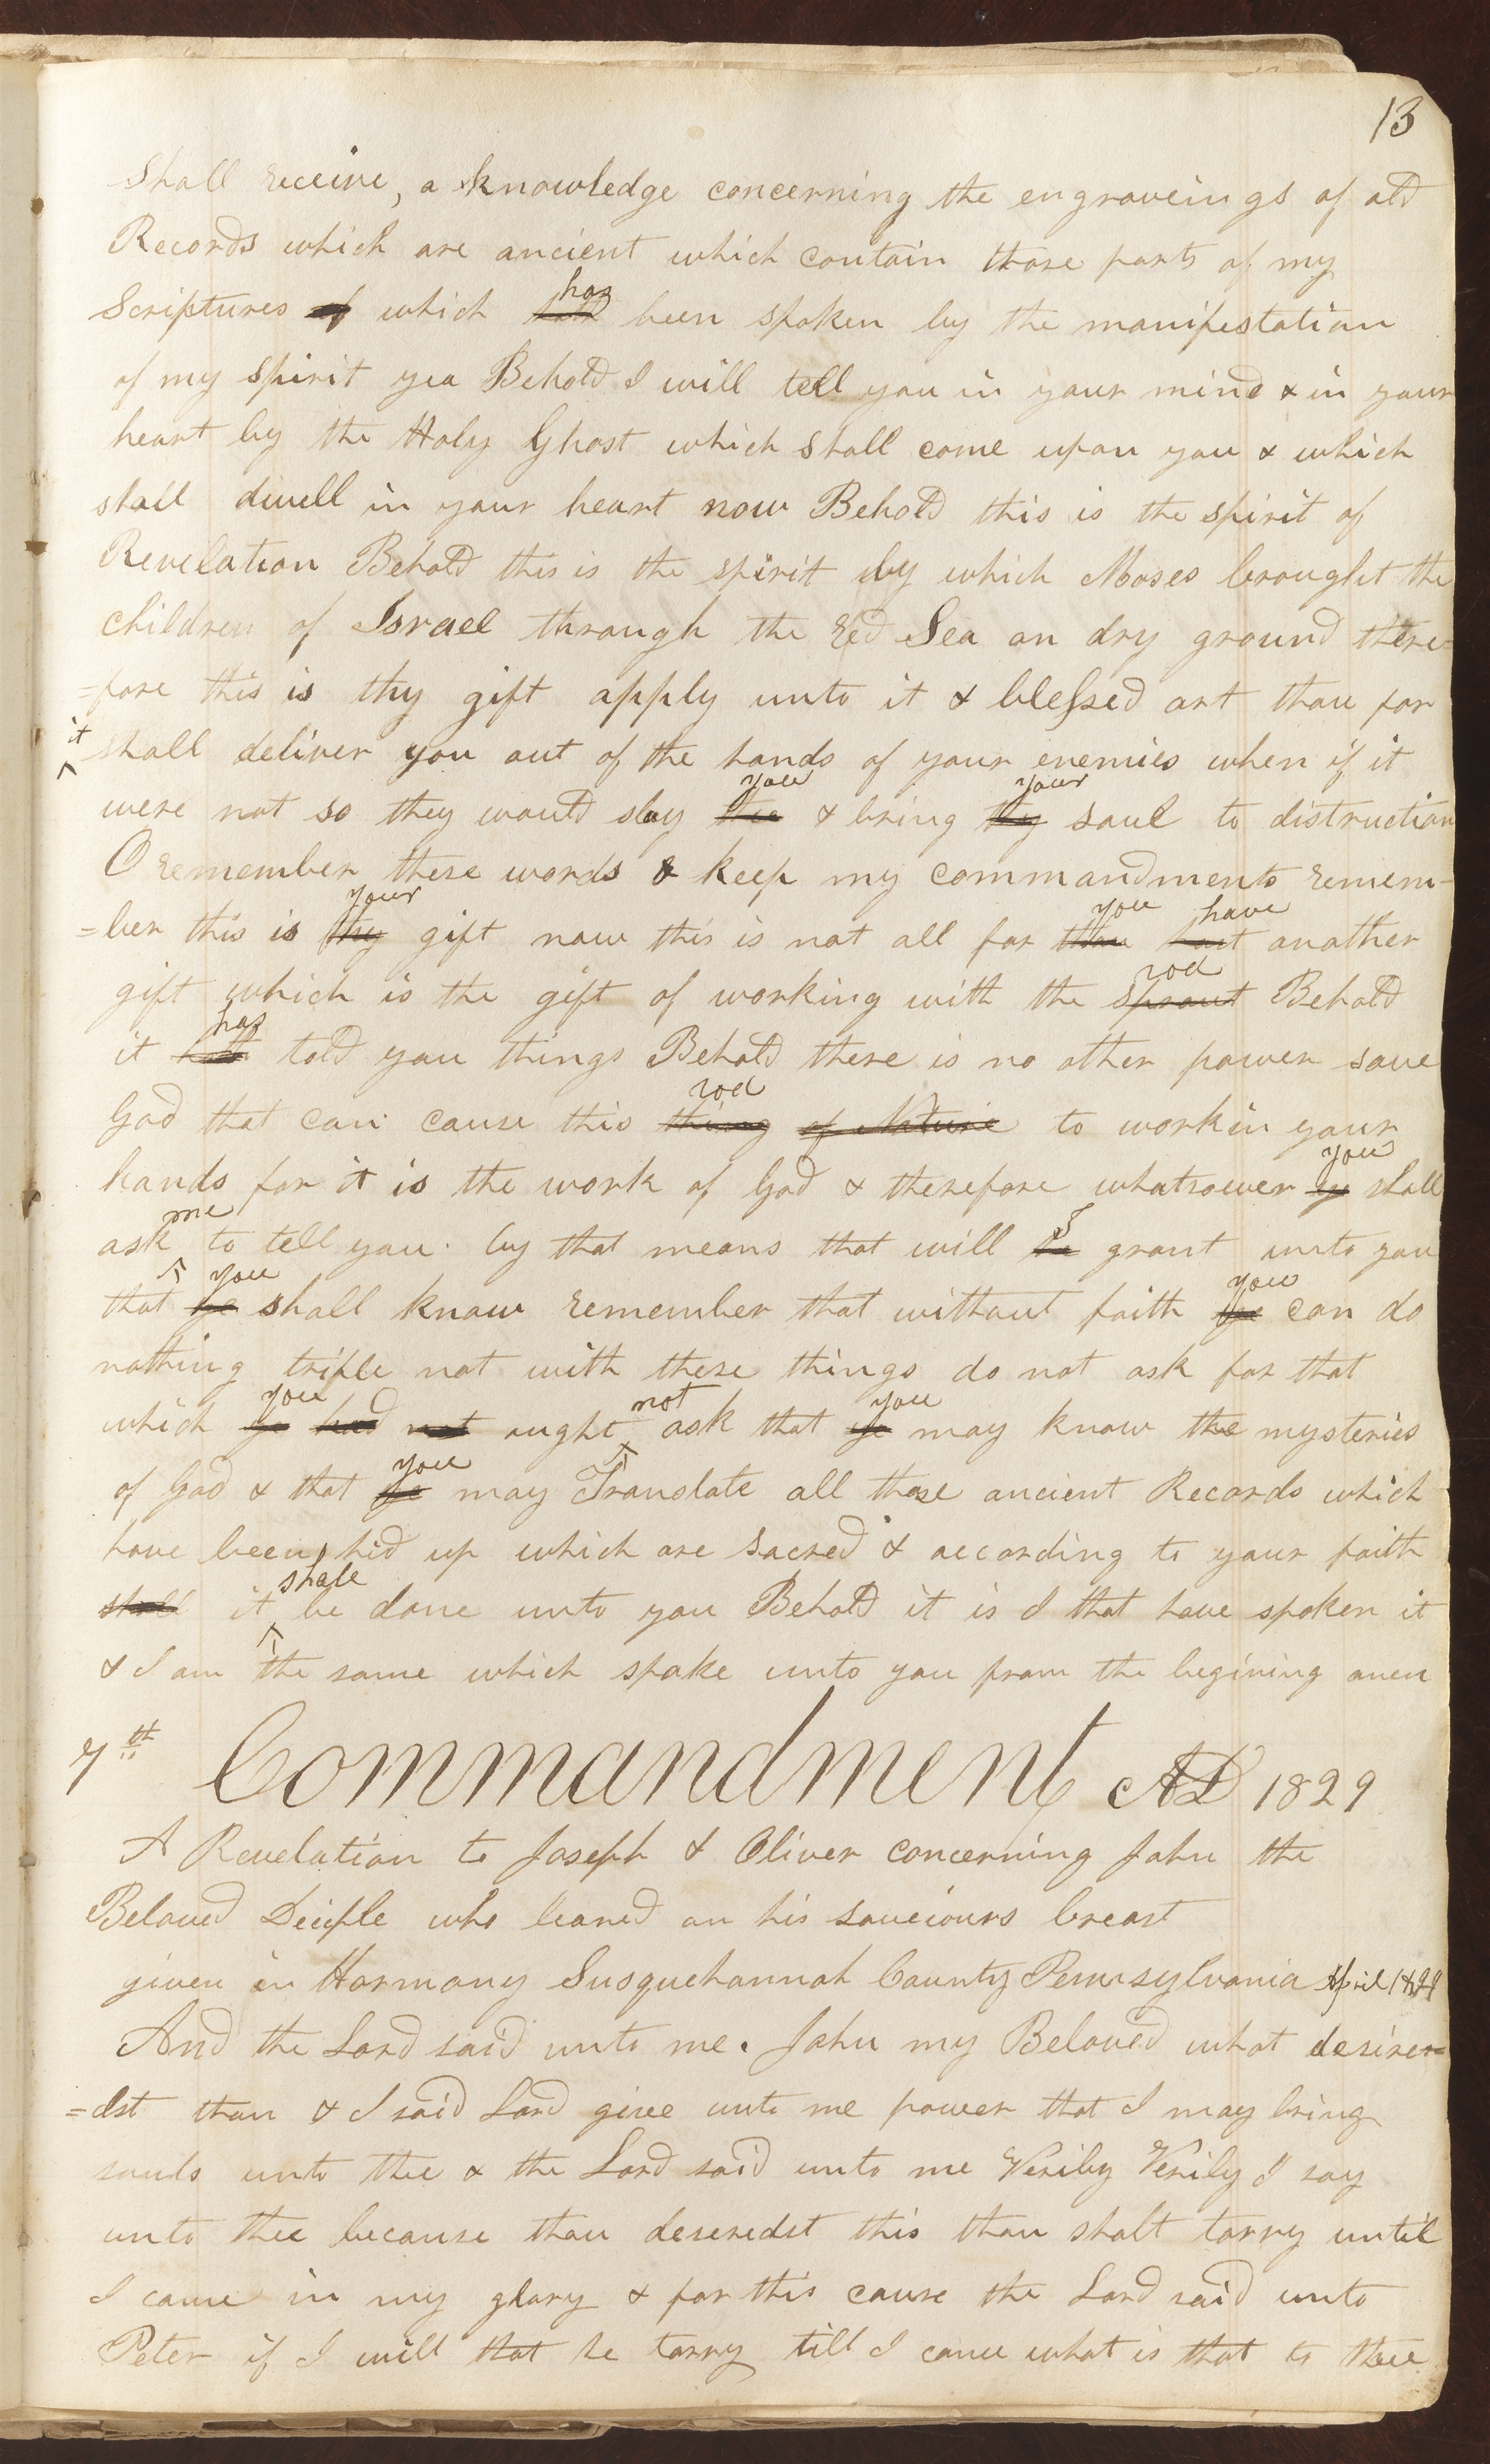 13
shall receive, a knowledge concerning the engraveings of old
Records which are ancient which contain those parts of my
Scriptures of which hath has been spoken by the manifestation
of my spirit yea Behold I will tell you in your mind & in your
heart by the Holy Ghost which Shall come upon you & which
shall dwell in your heart now Behold this is the spirit of
Revelation Behold this is the spirit by which Moses brought the
children of Israel through the red Sea on dry ground there=
=fore this is thy gift apply unto it & blessed art thou for
it shall deliver you out of the hands of your enemies when if it
were not so they would slay thee you & bring thy your soul to distruction
O remember these words & keep my commandments remem-
=ber this is thy your gift now this is not all for thou you hast have another
gift which is the gift of working with the sprout rod Behold
it hath has told you things Behold there is no other power save
God that can cause this thing rod of Nature to work in your
hands for it is the work of God & therefore whatsoever ye you shall
ask me to tell you by that means that will he I grant unto you
that ye you shall know remember that without faith ye you can do
nothing trifle not with these things do not ask for that
which ye you had not aught not ask that ye you may know the mysteries
of God & that ye you may Translate all those ancient Records which
have been hid up which are Sacred & according to your faith
shall it shall be done unto you Behold it is I that have spoken it
& I am the same which spake unto you from the begining amen
7th Commandment AD 1829
A Revelation to Joseph & Oliver concerning John the
Beloved Deciple who leaned on his saveiours breast
given in Harmony Susquehannah County Pennsylvania April 1829
And the Lord said unto me. John my Beloved what desirer=
=dst thou & I said Lord give unto me power that I may bring
souls unto thee & the Lord said unto me Verily Verily I say
unto thee because thou deseredst this thou shalt tarry until
I come in my glory & for this cause the Lord said unto
Peter if I will that he tarry till I come what is that to thee